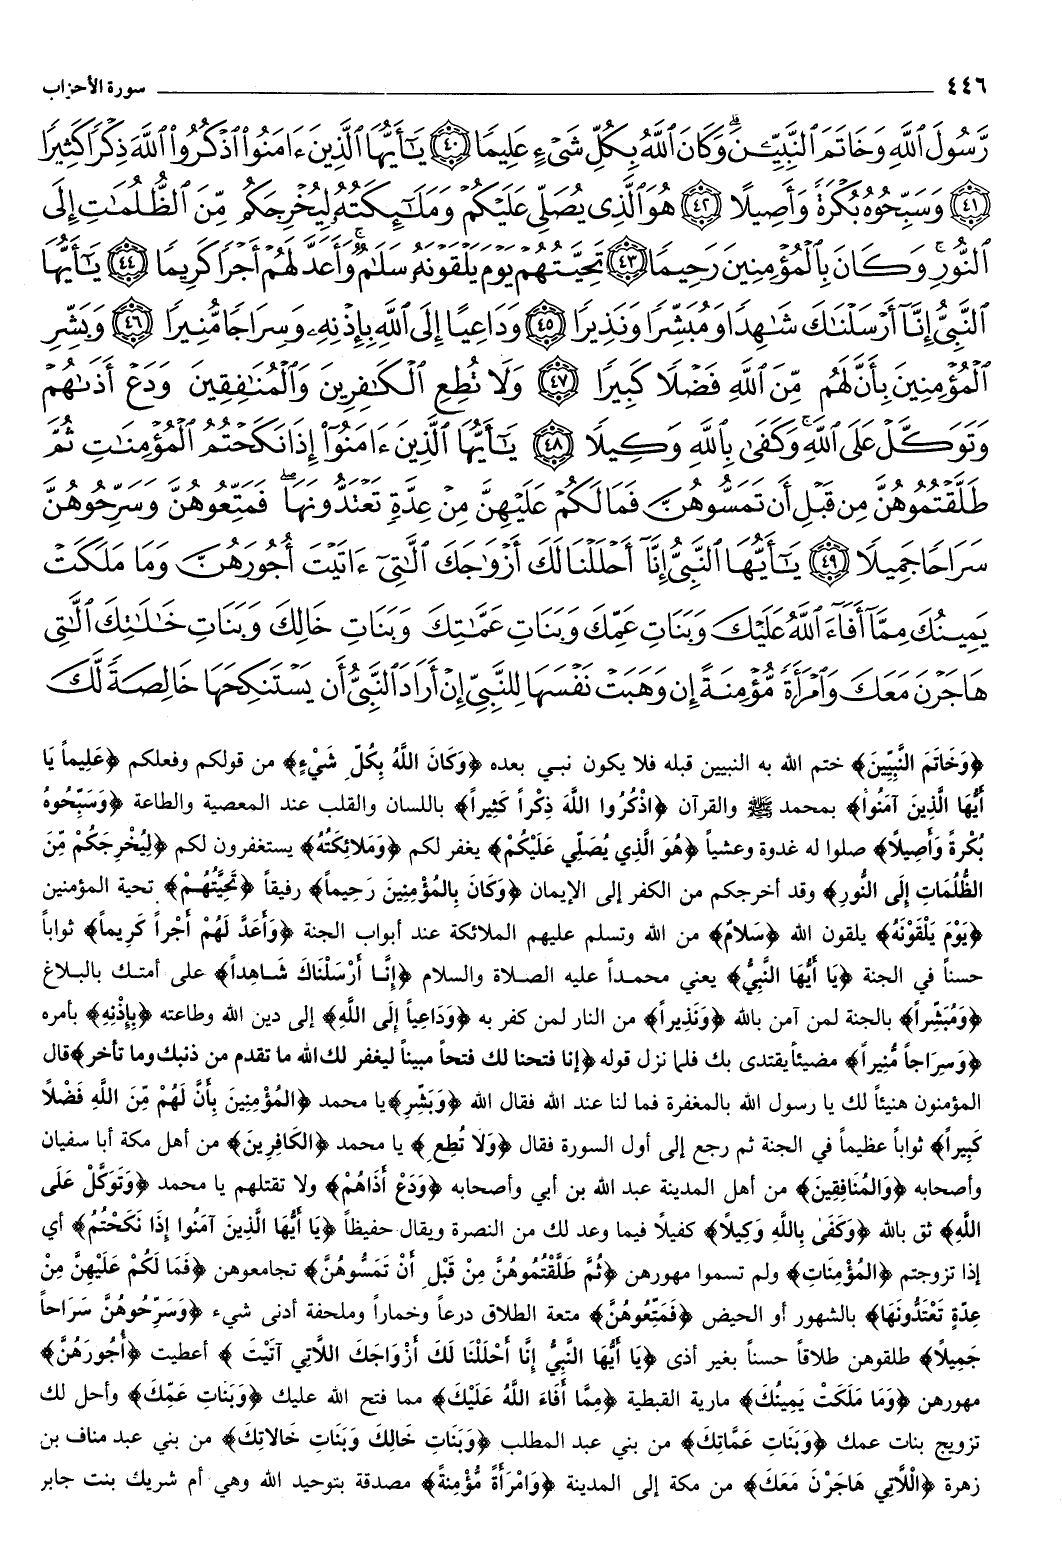 ٤٤٦ سورة الأحزاب
رَّسُولَ ٱللَّهِ وَخَاتَمَ ٱلنَّبِيِّـۧنَۗ وَكَانَ ٱللَّهُ بِكُلِّ شَىْءٍ عَلِيمًا ٤٠ يَـٰٓأَيُّهَا ٱلَّذِينَ ءَامَنُوا۟ ٱذْكُرُوا۟ ٱللَّهَ ذِكْرًا كَثِيرًا
٤١ وَسَبِّحُوهُ بُكْرَةً وَأَصِيلًا ٤٢ هُوَ ٱلَّذِى يُصَلِّى عَلَيْكُمْ وَمَلَـٰٓئِكَتُهُۥ لِيُخْرِجَكُم مِّنَ ٱلظُّلُمَـٰتِ إِلَى
ٱلنُّورِۚ وَكَانَ بِٱلْمُؤْمِنِينَ رَحِيمًا ٤٣ تَحِيَّتُهُمْ يَوْمَ يَلْقَوْنَهُۥ سَلَـٰمٌۚ وَأَعَدَّ لَهُمْ أَجْرًا كَرِيمًا ٤٤ يَـٰٓأَيُّهَا
ٱلنَّبِىُّ إِنَّآ أَرْسَلْنَـٰكَ شَـٰهِدًا وَمُبَشِّرًا وَنَذِيرًا ٤٥ وَدَاعِيًا إِلَى ٱللَّهِ بِإِذْنِهِۦ وَسِرَاجًا مُّنِيرًا ٤٦ وَبَشِّرِ
ٱلْمُؤْمِنِينَ بِأَنَّ لَهُم مِّنَ ٱللَّهِ فَضْلًا كَبِيرًا ٤٧ وَلَا تُطِعِ ٱلْكَـٰفِرِينَ وَٱلْمُنَـٰفِقِينَ وَدَعْ أَذَىٰهُمْ
وَتَوَكَّلْ عَلَى ٱللَّهِۚ وَكَفَىٰ بِٱللَّهِ وَكِيلًا ٤٨ يَـٰٓأَيُّهَا ٱلَّذِينَ ءَامَنُوٓا۟ إِذَا نَكَحْتُمُ ٱلْمُؤْمِنَـٰتِ ثُمَّ
طَلَّقْتُمُوهُنَّ مِن قَبْلِ أَن تَمَسُّوهُنَّ فَمَا لَكُمْ عَلَيْهِنَّ مِنْ عِدَّةٍ تَعْتَدُّونَهَاۖ فَمَتِّعُوهُنَّ وَسَرِّحُوهُنَّ
سَرَاحًا جَمِيلًا ٤٩ يَـٰٓأَيُّهَا ٱلنَّبِىُّ إِنَّآ أَحْلَلْنَا لَكَ أَزْوَٰجَكَ ٱلَّـٰتِىٓ ءَاتَيْتَ أُجُورَهُنَّ وَمَا مَلَكَتْ
يَمِينُكَ مِمَّآ أَفَآءَ ٱللَّهُ عَلَيْكَ وَبَنَاتِ عَمِّكَ وَبَنَاتِ عَمَّـٰتِكَ وَبَنَاتِ خَالِكَ وَبَنَاتِ خَـٰلَـٰتِكَ ٱلَّـٰتِى
هَاجَرْنَ مَعَكَ وَٱمْرَأَةً مُّؤْمِنَةً إِن وَهَبَتْ نَفْسَهَا لِلنَّبِىِّ إِنْ أَرَادَ ٱلنَّبِىُّ أَن يَسْتَنكِحَهَا خَالِصَةً لَّكَ
﴿وَخَاتَمَ النَّبِيِّينَ﴾ ختم الله به النبيين قبله فلا يكون نبي بعده ﴿وَكَانَ اللَّهُ بِكُلِّ شَيْءٍ﴾ من قولكم وفعلكم ﴿عَلِيماً يَا
أَيُّهَا الَّذِينَ آمَنُواْ﴾ بمحمد ﷺ والقرآن ﴿اذْكُرُوا اللَّهَ ذِكْراً كَثِيراً﴾ باللسان والقلب عند المعصية والطاعة ﴿وَسَبِّحُوهُ
بُكْرَةً وَأَصِيلاً﴾ صلوا له غدوة وعشياً ﴿هُوَ الَّذِي يُصَلِّي عَلَيْكُمْ﴾ يغفر لكم ﴿وَمَلائِكَتُهُ﴾ يستغفرون لكم ﴿لِيُخْرِجَكُمْ مِّنَ
الظُّلُمَاتِ إِلَى النُّورِ﴾ وقد أخرجكم من الكفر إلى الإيمان ﴿وَكَانَ بِالمُؤْمِنِينَ رَحِيماً﴾ رفيقاً ﴿تَحِيَّتُهُمْ﴾ تحية المؤمنين
﴿يَوْمَ يَلْقَوْنَهُ﴾ يلقون الله ﴿سَلامٌ﴾ من الله وتسلم عليهم الملائكة عند أبواب الجنة ﴿وَأَعَدَّ لَهُمْ أَجْراً كَرِيماً﴾ ثواباً
حسناً في الجنة ﴿يَا أَيُّهَا النَّبِيُّ﴾ يعني محمداً عليه الصلاة والسلام ﴿إِنَّا أَرْسَلْنَاكَ شَاهِداً﴾ على أمتك بالبلاغ
﴿وَمُبَشِّراً﴾ بالجنة لمن آمن بالله ﴿وَنَذِيراً﴾ من النار لمن كفر به ﴿وَدَاعِياً إِلَى اللَّهِ﴾ إلى دين الله وطاعته ﴿بِإِذْنِهِ﴾ بأمره
﴿وَسِرَاجاً مُّنِيراً﴾ مضيئاً يقتدى بك فلما نزل قوله ﴿إنا فتحنا لك فتحاً مبيناً ليغفر لك الله ما تقدم من ذنبك وما تأخر﴾ قال
المؤمنون هنيئاً لك يا رسول الله بالمغفرة فما لنا عند الله فقال الله ﴿وَبَشِّرِ﴾ يا محمد ﴿المُؤْمِنِينَ بِأَنَّ لَهُمْ مِّنَ اللَّهِ فَضْلاً
كَبِيراً﴾ ثواباً عظيماً في الجنة ثم رجع إلى أول السورة فقال ﴿وَلَا تُطِعِ﴾ يا محمد ﴿الكَافِرِينَ﴾ من أهل مكة أبا سفيان
وأصحابه ﴿وَالمُنَافِقِينَ﴾ من أهل المدينة عبد الله بن أبي وأصحابه ﴿وَدَعْ أَذَاهُمْ﴾ ولا تقتلهم يا محمد ﴿وَتَوَكَّلْ عَلَى
اللَّهِ﴾ ثق بالله ﴿وَكَفَىٰ بِاللَّهِ وَكِيلاً﴾ كفيلاً فيما وعد لك من النصرة ويقال حفيظاً ﴿يَا أَيُّهَا الَّذِينَ آمَنُوا إِذَا نَكَحْتُمُ﴾ أي
إذا تزوجتم ﴿المُؤْمِنَاتِ﴾ ولم تسموا مهورهن ﴿ثُمَّ طَلَّقْتُمُوهُنَّ مِنْ قَبْلِ أَنْ تَمَسُّوهُنَّ﴾ تجامعوهن ﴿فَمَا لَكُمْ عَلَيْهِنَّ مِنْ
عِدَّةٍ تَعْتَدُّونَهَا﴾ بالشهور أو الحيض ﴿فَمَتِّعُوهُنَّ﴾ متعة الطلاق درعاً وخماراً وملحفة أدنى شيء ﴿وَسَرِّحُوهُنَّ سَرَاحاً
جَمِيلاً﴾ طلقوهن طلاقاً حسناً بغير أذى ﴿يَا أَيُّهَا النَّبِيُّ إِنَّا أَحْلَلْنَا لَكَ أَزْوَاجَكَ اللاَّتِي آتَيْتَ﴾ أعطيت ﴿أُجُورَهُنَّ﴾
مهورهن ﴿وَمَا مَلَكَتْ يَمِينُكَ﴾ مارية القبطية ﴿مِمَّا أَفَاءَ اللَّهُ عَلَيْكَ﴾ مما فتح الله عليك ﴿وَبَنَاتِ عَمِّكَ﴾ وأحل لك
تزويج بنات عمك ﴿وَبَنَاتِ عَمَّاتِكَ﴾ من بني عبد المطلب ﴿وَبَنَاتِ خَالِكَ وَبَنَاتِ خَالاتِكَ﴾ من بني عبد مناف بن
زهرة ﴿الْلَّاتِي هَاجَرْنَ مَعَكَ﴾ من مكة إلى المدينة ﴿وَامْرَأَةً مُّؤْمِنَةً﴾ مصدقة بتوحيد الله وهي أم شريك بنت جابر